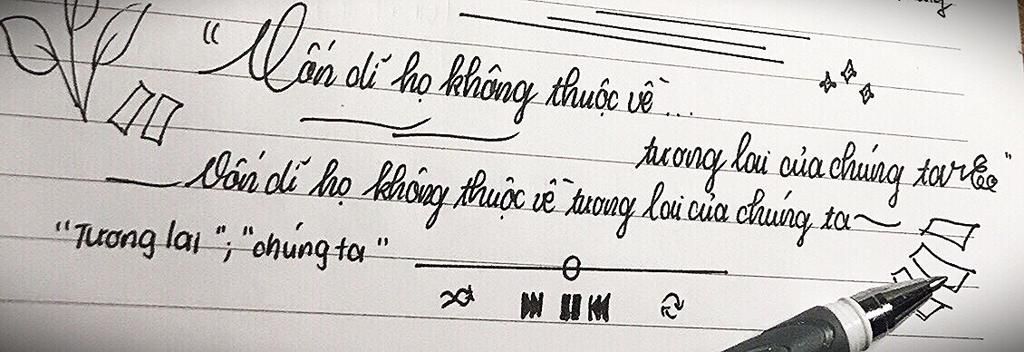 "Vốn dĩ họ không thuộc về...
tương lai của chúng ta"
Vốn dĩ họ không thuộc về tương lai của chúng ta~
"Tương lai"; "chúng ta"